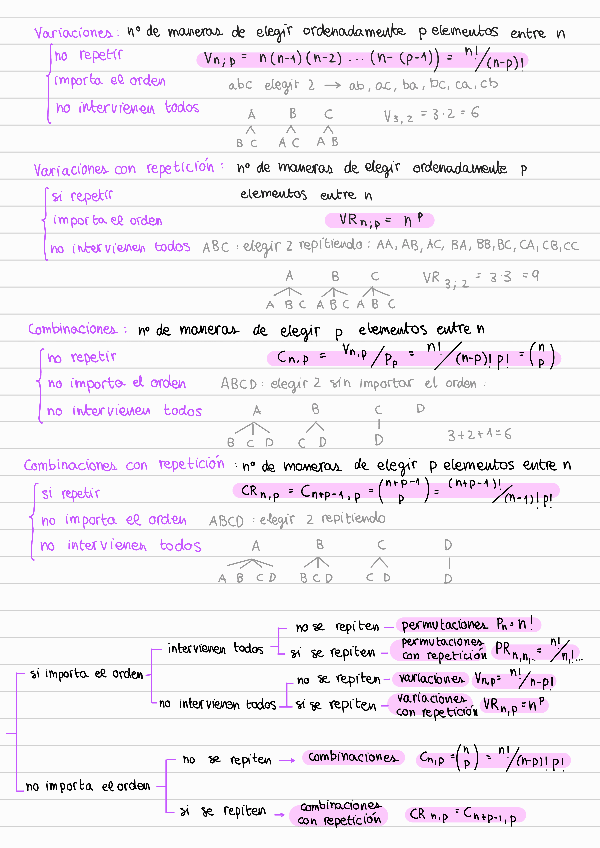 Variaciones: nº de maneras de elegir ordenadamente p elementos entre n
no repetir Vn;p = n(n-1)(n-2)...(n-(p-1)) = n!/(n-p)!
importa el orden abc elegir 2 → ab, ac, ba, bc, ca, cb
no intervienen todos A B C V3,2 = 3·2 = 6
B C A C A B
Variaciones con repetición: nº de maneras de elegir ordenadamente p
si repetir elementos entre n
importa el orden VRn;p = n^p
no intervienen todos ABC: elegir 2 repitiendo: AA, AB, AC, BA, BB, BC, CA, CB, CC
A B C VR3;2 = 3·3 = 9
A B C A B C A B C
Combinaciones: nº de maneras de elegir p elementos entre n
no repetir Cn,p = Vn,p/Pp = n!/(n-p)! p! = (n p)
no importa el orden ABCD: elegir 2 sin importar el orden.
no intervienen todos A B C D
B C D C D D 3+2+1=6
Combinaciones con repetición: nº de maneras de elegir p elementos entre n
si repetir CRn,p = Cn+p-1,p = (n+p-1 p) = (n+p-1)!/(n-1)! p!
no importa el orden ABCD: elegir 2 repitiendo
no intervienen todos A B C D
A B C D B C D C D D
no se repiten permutaciones Pn = n!
intervienen todos
si se repiten permutaciones con repetición PRn,n1.. = n!/n1!...
si importa el orden
no se repiten variaciones Vn,p = n!/n-p!
no intervienen todos si se repiten variaciones con repetición VRn,p = n^p
no se repiten → combinaciones Cn,p = (n p) = n!/(n-p)! p!
no importa el orden
si se repiten → combinaciones con repetición CRn,p = Cn+p-1,p